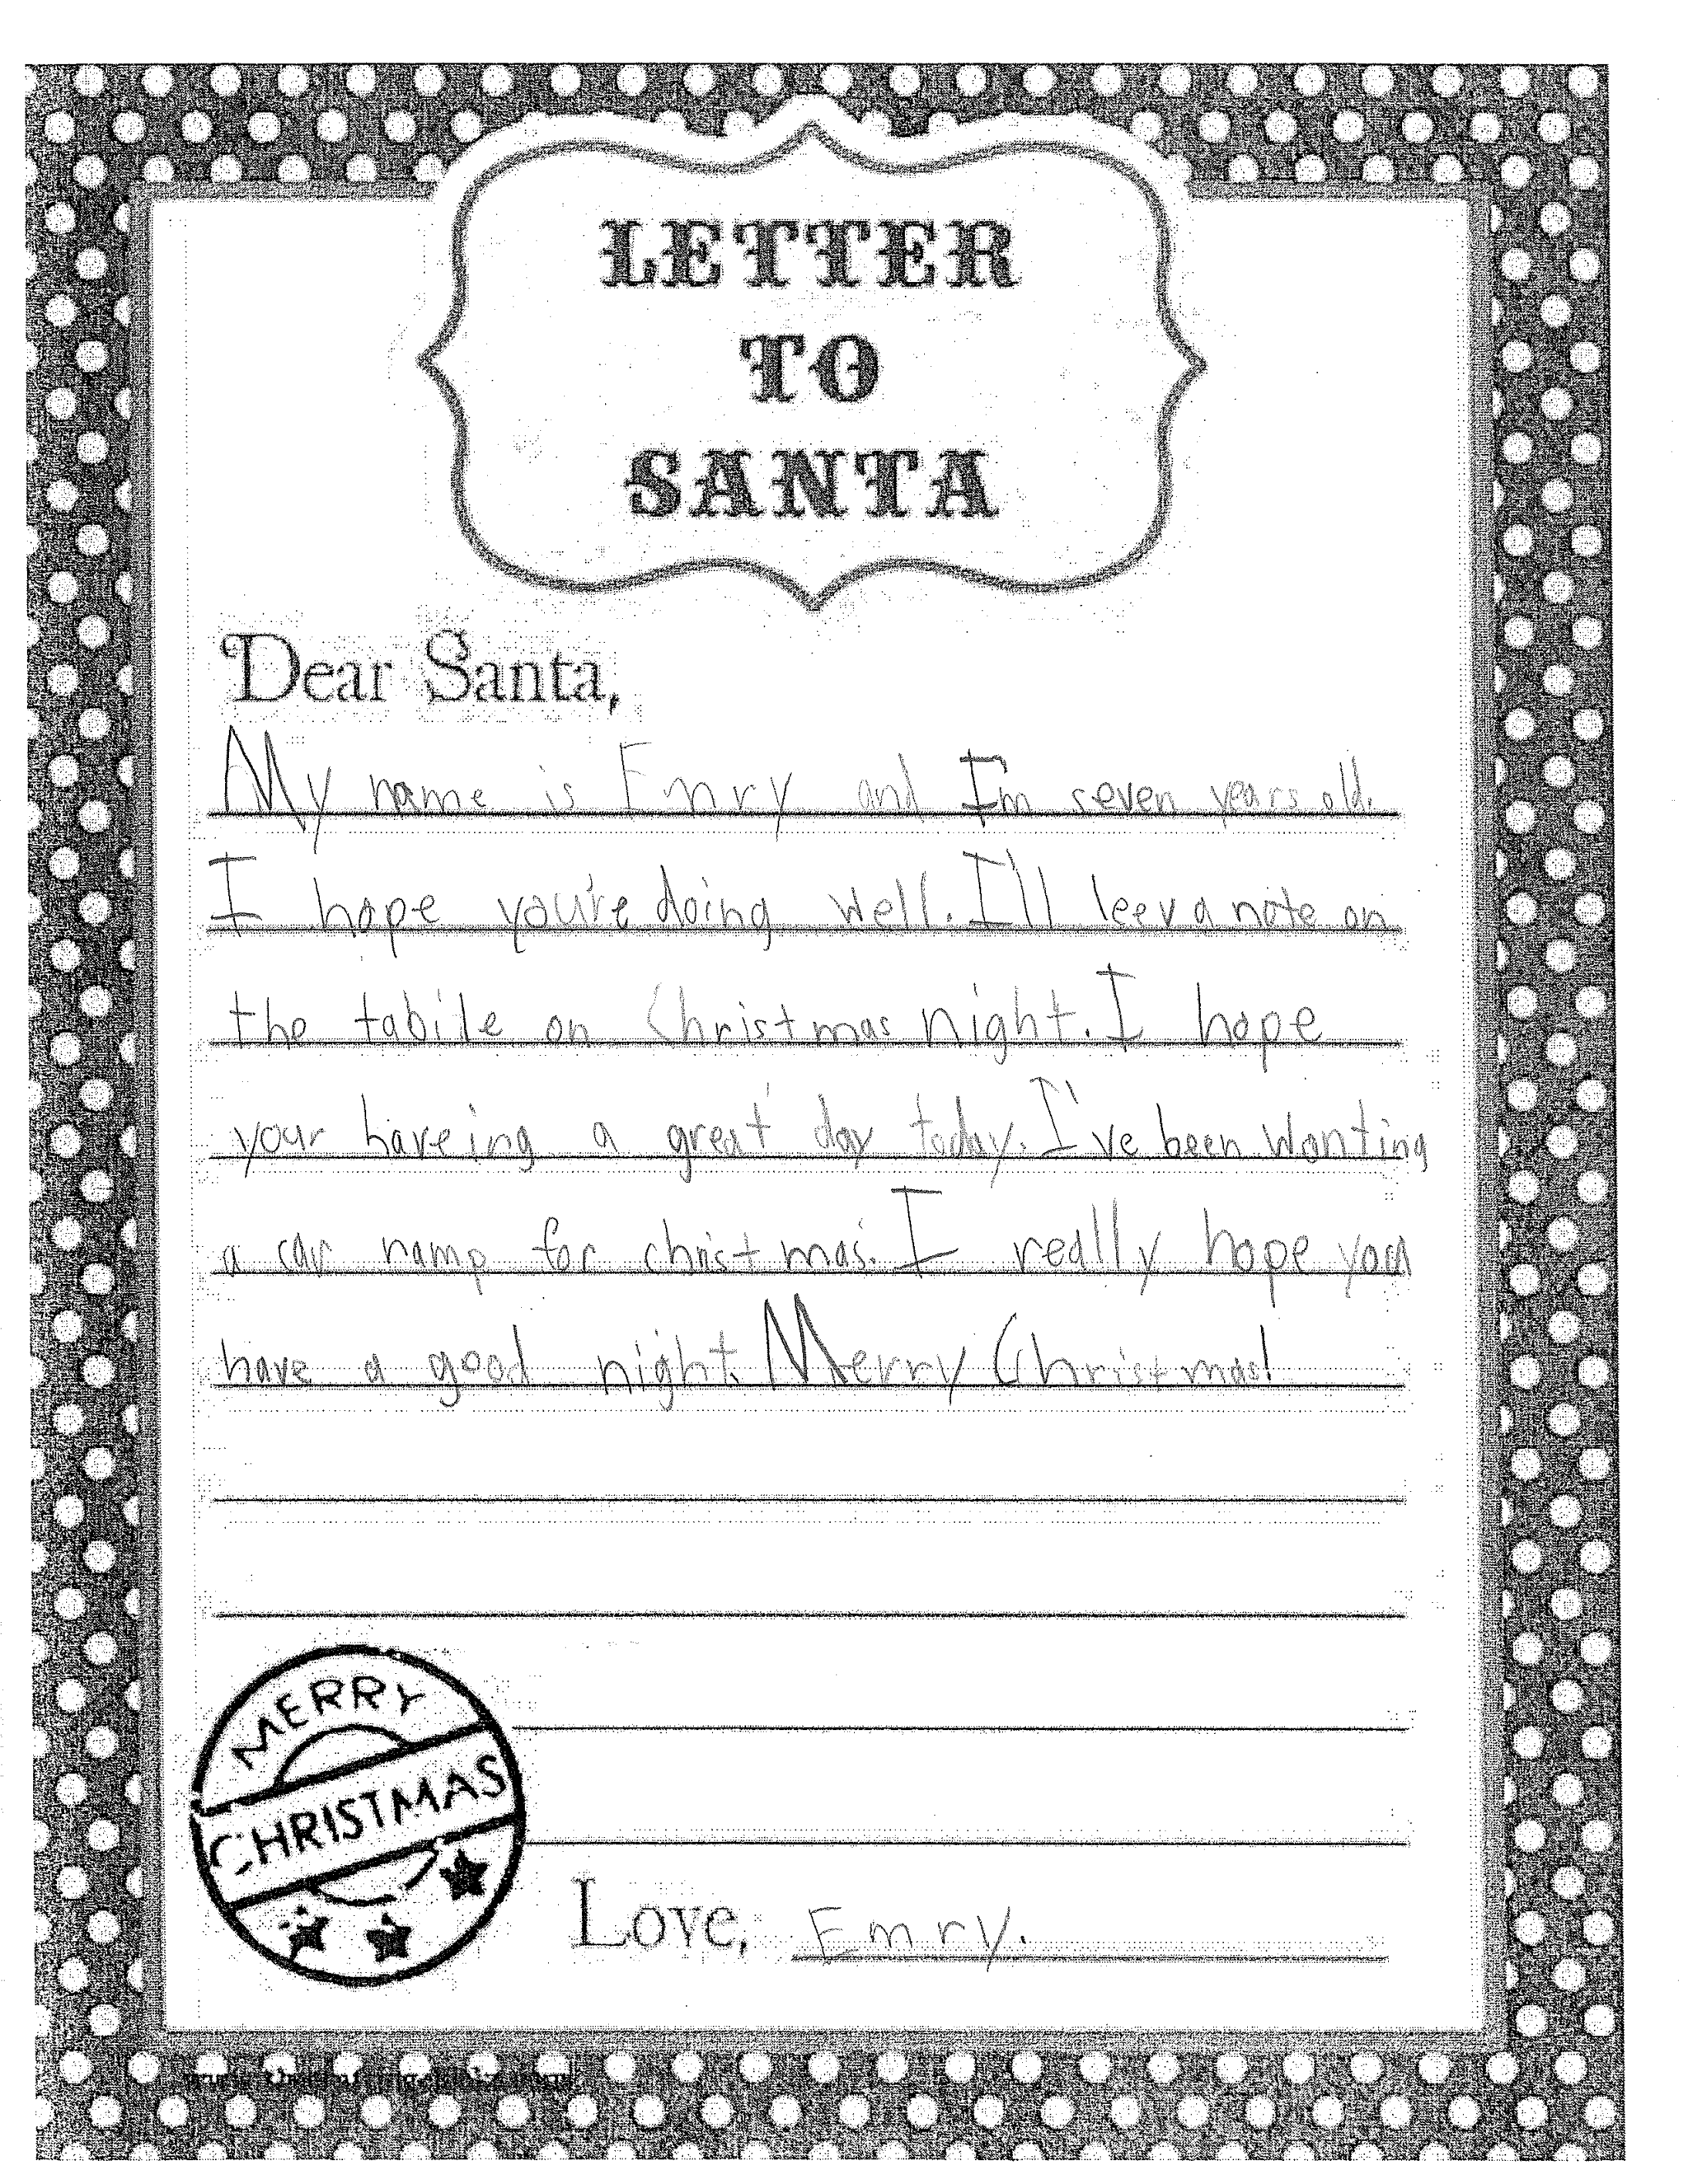 LETTER
TO
SANTA
Dear Santa,
My name is Emry and Im seven years old.
I hope you're doing well. I'll leev a note on
the tabile on Christmas night. I hope
your haveing a great day today. I've been wanting
a car ramp for christmas. I really hope you
have a good night. Merry Christmas!
MERRY
CHRISTMAS
Love, Emry.